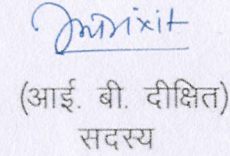 (आई. बी. दीक्षित)
सदस्य